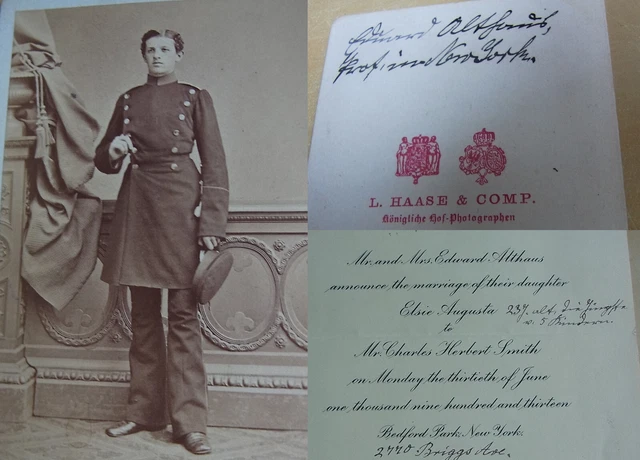 Edward Althaus,
Prof. in New York.
L. HAASE & COMP.
Königliche Hof-Photographen
Mr. and Mrs. Edward Althaus
announce the marriage of their daughter
Elsie Augusta 23 j. alt. die jüngste
v. 5 Kindern.
to
Mr. Charles Herbert Smith
on Monday the thirtieth of June
one thousand nine hundred and thirteen
Bedford Park, New York.
2770 Briggs Ave.